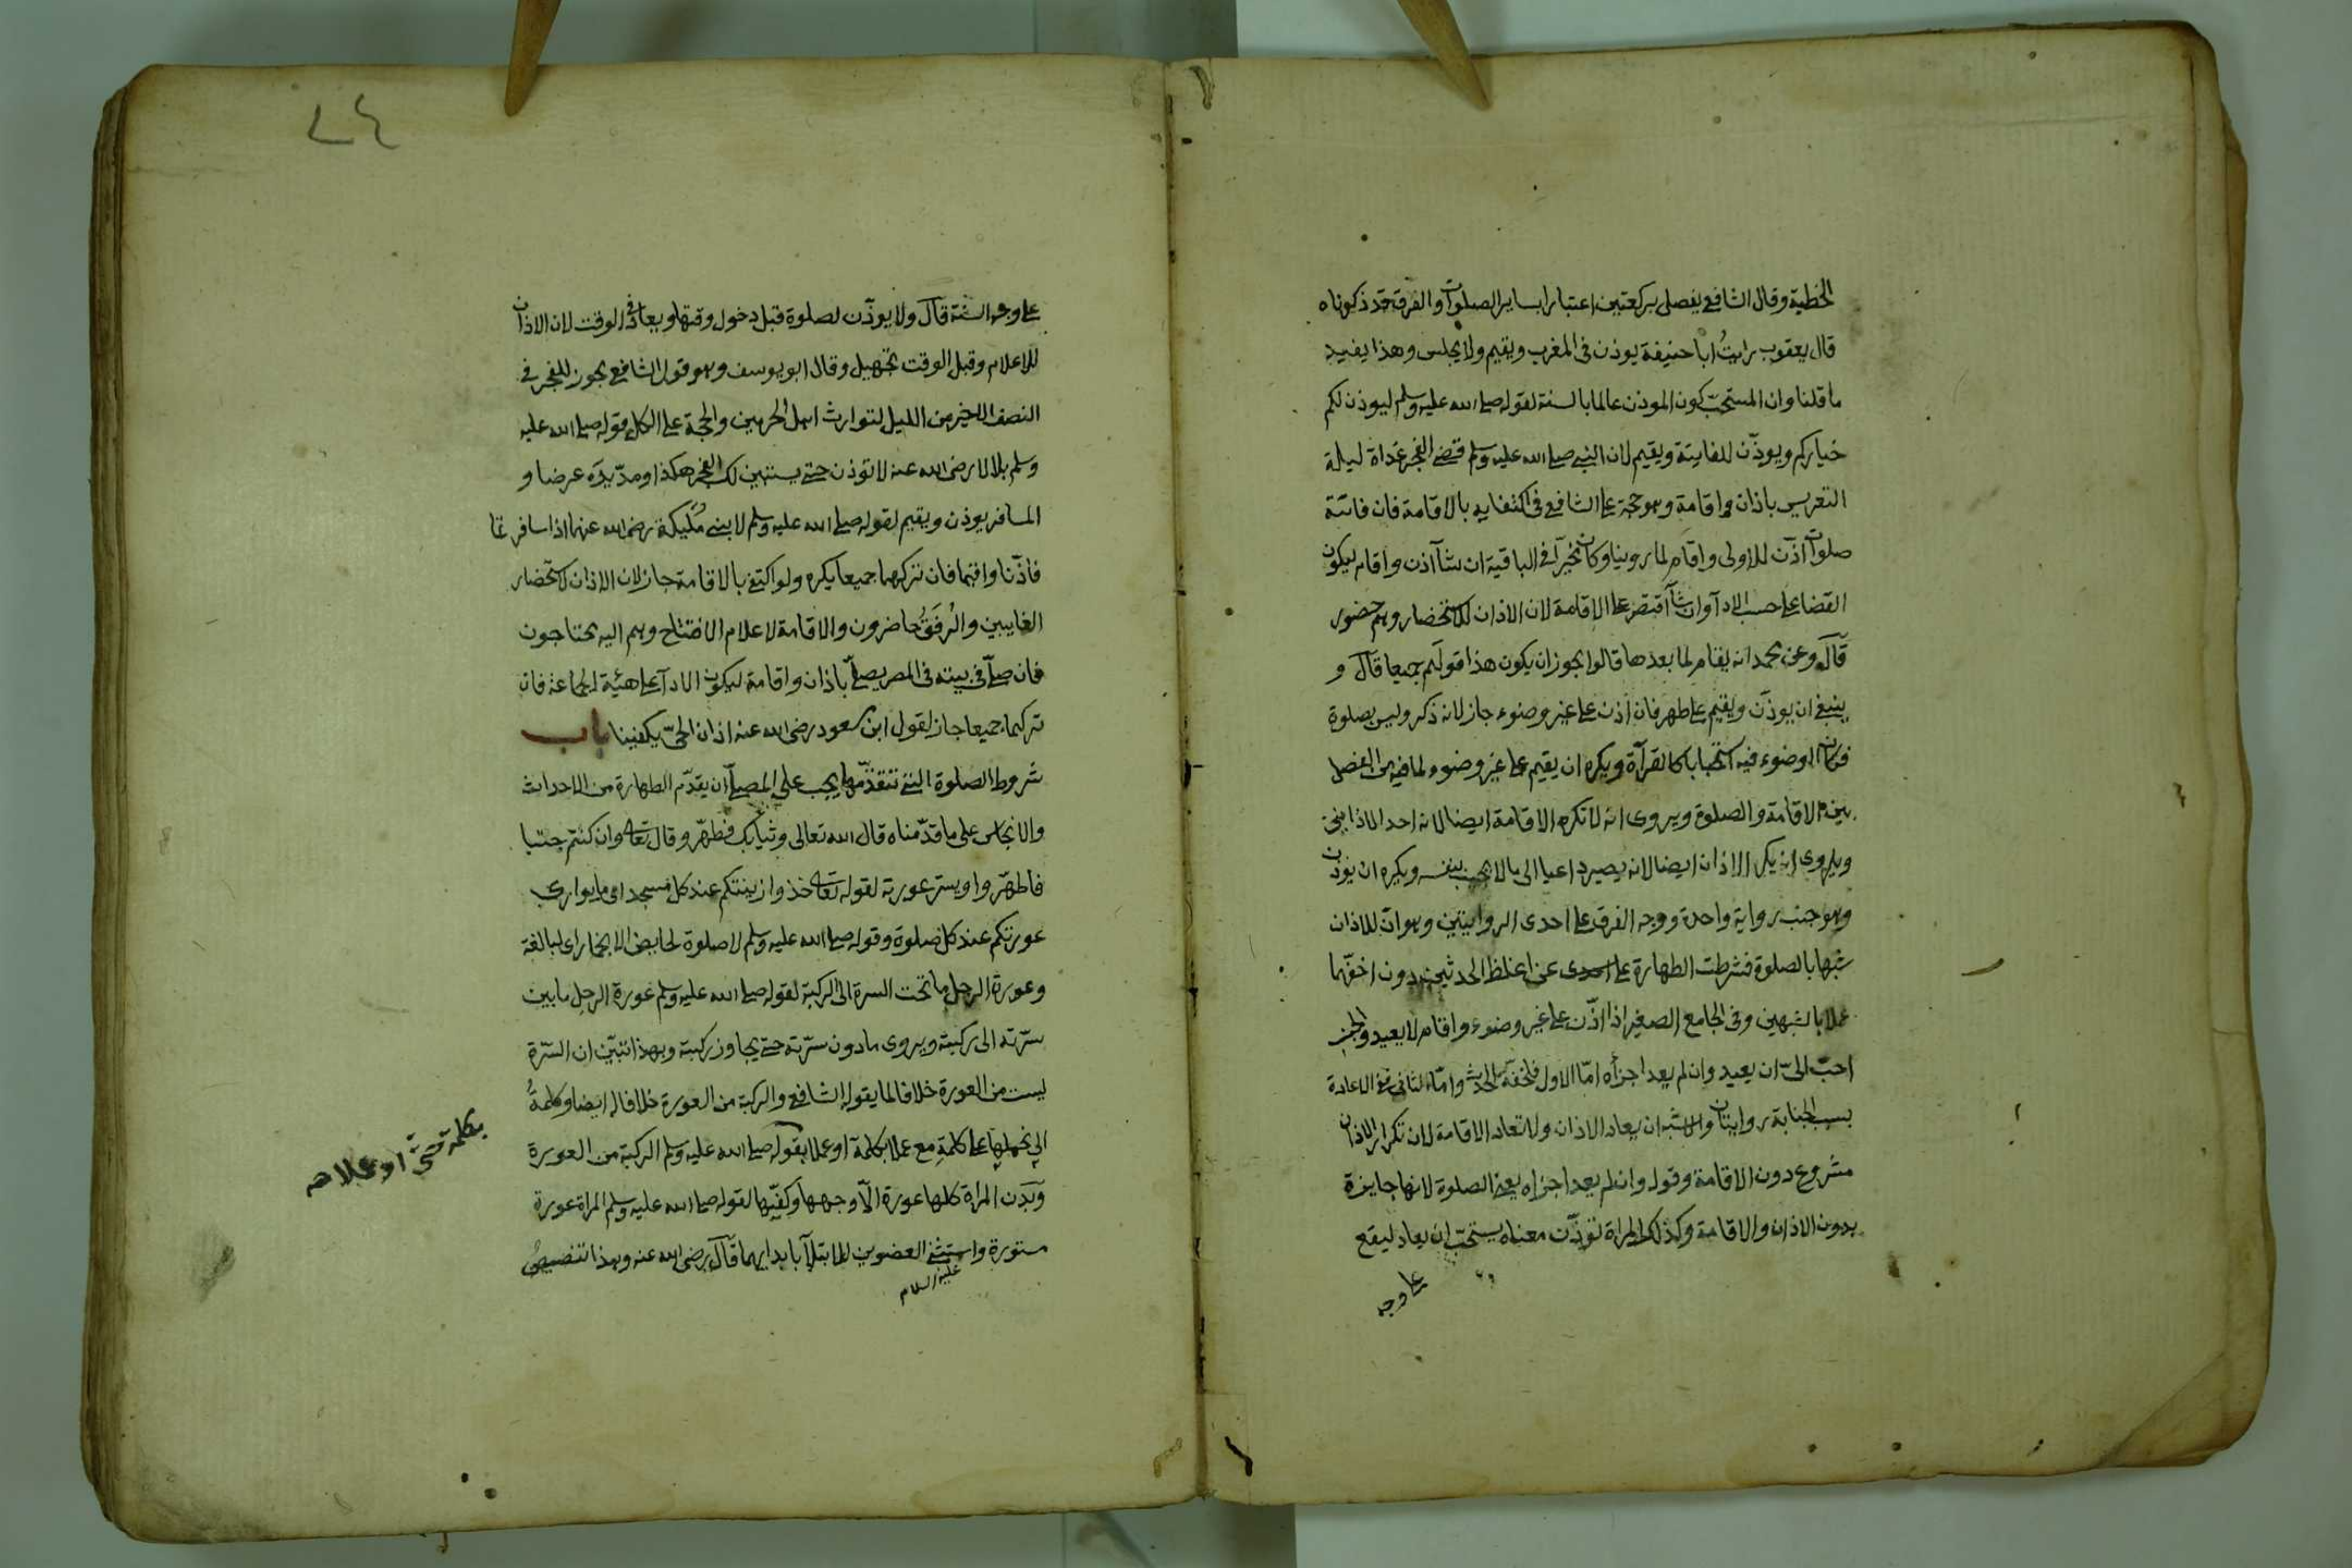 الخطبة وقال الشافعي يفصل بركعتين اعتبارا بساير الصلوات والفرق قد ذكرناه
قال يعقوب رايتُ ابا حنيفة يوذن في المغرب ويقيم ولا يجلس وهذا يفيد
ما قلنا وان المستحبّ كون الموذن عالما بالسنة لقوله صلى الله عليه وسلم ليوذن لكم
خياركم ويوذّن للفايتة ويقيم لان النبي صلى الله عليه وسلم قضى الفجر غداة ليلة
التعريس باذان واقامة وهو حجة على الشافعي في اكتفايه بالاقامة فان فاتتة
صلوات اذّن للاولى واقام لما روينا وكان مخيّرا في الباقية ان شآ اذن واقام ليكون
القضا على حسب الادآ وان شآ اقتصر على الاقامة لان الاذان للاستحضار وهم حضور
قال وعن محمد انه يقام لما بعدها قالوا يجوز ان يكون هذا قولَهم جميعا قال و
ينبغي ان يوذّن ويقيم على طهر فان اذن على غير وضوء جاز لانه ذكر وليس بصلوة
فكان الوضوء فيه استحبابا كالقرآة ويكره ان يقيم على غير وضوء لما فيه من الفصل
بين الاقامة والصلوة ويروى انه لا تكره الاقامة ايضا لانه احد الاذانين
ويروى انه يكره الاذان ايضا لانه يصير داعيا الى ما لا يجيب بنفسه ويكره ان يوذن
وهو جنب رواية واحدة ووجه الفرق على احدى الروايتين وهو انّ للاذان
شبها بالصلوة فشرطت الطهارة عن اغلظ الحدثين دون اخفّهما
عملا بالشبهين وفي الجامع الصغير اذا اذّن على غير وضوء واقام لا يعيد والجنب
احبّ اليّ ان يعيد وان لم يعد اجزأه امّا الاول فلخفّة الحدث وامّا الثاني ففي الاعادة
بسبب الجنابة روايتان والاشبه ان يعاد الاذان ولا تعاد الاقامة لان تكرار الاذان
مشروع دون الاقامة وقوله وان لم يعد اجزاه يعني الصلوة لانها جايزة
بدون الاذان والاقامة وكذلك المراة تؤذّن معناه يستحبّ ان يعاد ليقع
على وجه
٢٤
على وجه السنة قال ولا يوذّن لصلوة قبل دخول وقتها ويعاد في الوقت لان الاذان
للاعلام وقبل الوقت تجهيل وقال ابو يوسف وهو قول الشافعي يجوز للفجر في
النصف الاخير من الليل لتوارث اهل الحرمين والحجة على الكل قوله صلى الله عليه
وسلم بلال رضي الله عنه لا توذن حتى يستبين لك الفجر هكذا ومدّ يدَه عرضا و
المسافر يوذن ويقيم لقوله صلى الله عليه وسلم لابني مُليكة رضي الله عنهما اذا سافرتما
فاذّنا واقيما فان تركهما جميعا يكره ولو اكتفى بالاقامة جاز لان الاذان لاستحضار
الغايبين والرُفقَةُ حاضرون والاقامة لاعلام الافتتاح وهم اليه محتاجون
فان صلّى في بيته في المصر يصلّي باذان واقامة ليكون الادآ على هيئة الجماعة فان
تركهما جميعا جاز لقول ابن مسعود رضي الله عنه اذان الحيّ يكفينا باب
شروط الصلوة التي تتقدّمها يجب على المصلّي ان يقدّم الطهارة من الاحداث
والانجاس على ما قدّمناه قال الله تعالى وثيابك فطهّر وقال تعالى وان كنتم جنبا
فاطهّروا ويستر عورته لقوله تعالى خذوا زينتكم عند كل مسجد اي ما يواري
عورتكم عند كل صلوة وقوله صلى الله عليه وسلم لا صلوة لحايض الا بخمار اى لبالغة
وعورة الرجل ما تحت السرة الى الركبة لقوله صلى الله عليه وسلم عورة الرجل ما بين
سرّته الى ركبته ويروى ما دون سرّته حتى يجاوز ركبته وبهذا تبيّن ان السّرة
ليست من العورة خلافا لما يقوله الشافعي والركبة من العورة خلافا له ايضا وكلمةُ
الى نحملها على كلمةِ مع عملا بكلمة او عملا بقوله صلى الله عليه وسلم الركبة من العورة
وبَدن المراة كلها عورة الّا وجهها وكفّيها لقوله صلى الله عليه وسلم المراة عورة
مستورة واستثنى العضوين للابتلآ بابدايهما قال رضي الله عنه وهذا تنصيصٌ
عليه السلام
بكلمة حتى او عملا صح